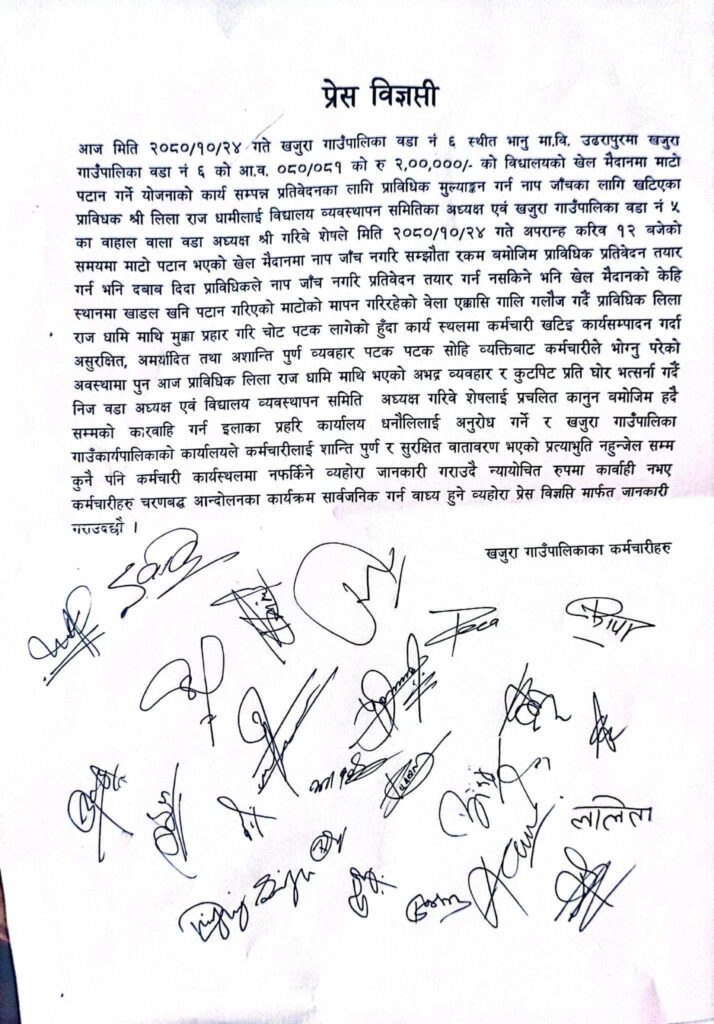 प्रेस विज्ञप्ती
आज मिति २०८०/१०/२४ गते खजुरा गाउँपालिका वडा नं ६ स्थीत भानु मा.वि. उढरापुरमा खजुरा
गाउँपालिका वडा नं ६ को आ.व. ०८०/०८१ को रु २,००,०००/- को विधालयको खेल मैदानमा माटो
पटान गर्ने योजनाको कार्य सम्पन्न प्रतिवेदनका लागि प्राविधिक मुल्याङ्कन गर्न नाप जाँचका लागि खटिएका
प्राविधक श्री लिला राज धामीलाई विद्यालय व्यवस्थापन समितिका अध्यक्ष एवं खजुरा गाउँपालिका वडा नं ५
का वाहाल वाला वडा अध्यक्ष श्री गरिवे शेषले मिति २०८०/१०/२४ गते अपरान्ह करिव १२ बजेको
समयमा माटो पटान भएको खेल मैदानमा नाप जाँच नगरि सम्झौता रकम बमोजिम प्राविधिक प्रतिवेदन तयार
गर्न भनि दबाव दिदा प्राविधिकले नाप जाँच नगरि प्रतिवेदन तयार गर्न नसकिने भनि खेल मैदानको केहि
स्थानमा खाडल खनि पटान गरिएको माटोको मापन गरिरहेको वेला एक्कासि गालि गलौज गर्दै प्राविधिक लिला
राज धामि माथि मुक्का प्रहार गरि चोट पटक लागेको हुँदा कार्य स्थलमा कर्मचारी खटिइ कार्यसम्पादन गर्दा
असुरक्षित, अमर्यादित तथा अशान्ति पुर्ण व्यवहार पटक पटक सोहि व्यक्तिवाट कर्मचारीले भोग्नु परेको
अवस्थामा पुन आज प्राविधिक लिला राज धामि माथि भएको अभद्र व्यवहार र कुटपिट प्रति घोर भर्त्सर्ना गर्दै
निज वडा अध्यक्ष एवं विद्यालय व्यवस्थापन समिति अध्यक्ष गरिवे शेषलाई प्रचलित कानुन बमोजिम हदै
सम्मको कारवाहि गर्न इलाका प्रहरि कार्यालय धनौलिलाई अनुरोध गर्ने र खजुरा गाउँपालिका
गाउँकार्यपालिकाको कार्यालयले कर्मचारीलाई शान्ति पुर्ण र सुरक्षित वातावरण भएको प्रत्याभुति नहुन्जेल सम्म
कुनै पनि कर्मचारी कार्यस्थलमा नफर्किने व्यहोरा जानकारी गराउदै न्यायोचित रुपमा कार्वाही नभए
कर्मचारीहरु चरणबद्ध आन्दोलनका कार्यक्रम सार्वजनिक गर्न वाध्य हुने व्यहोरा प्रेस विज्ञप्ति मार्फत जानकारी
गराउदछौ ।
खजुरा गाउँपालिकाका कर्मचारीहरु
ललिता